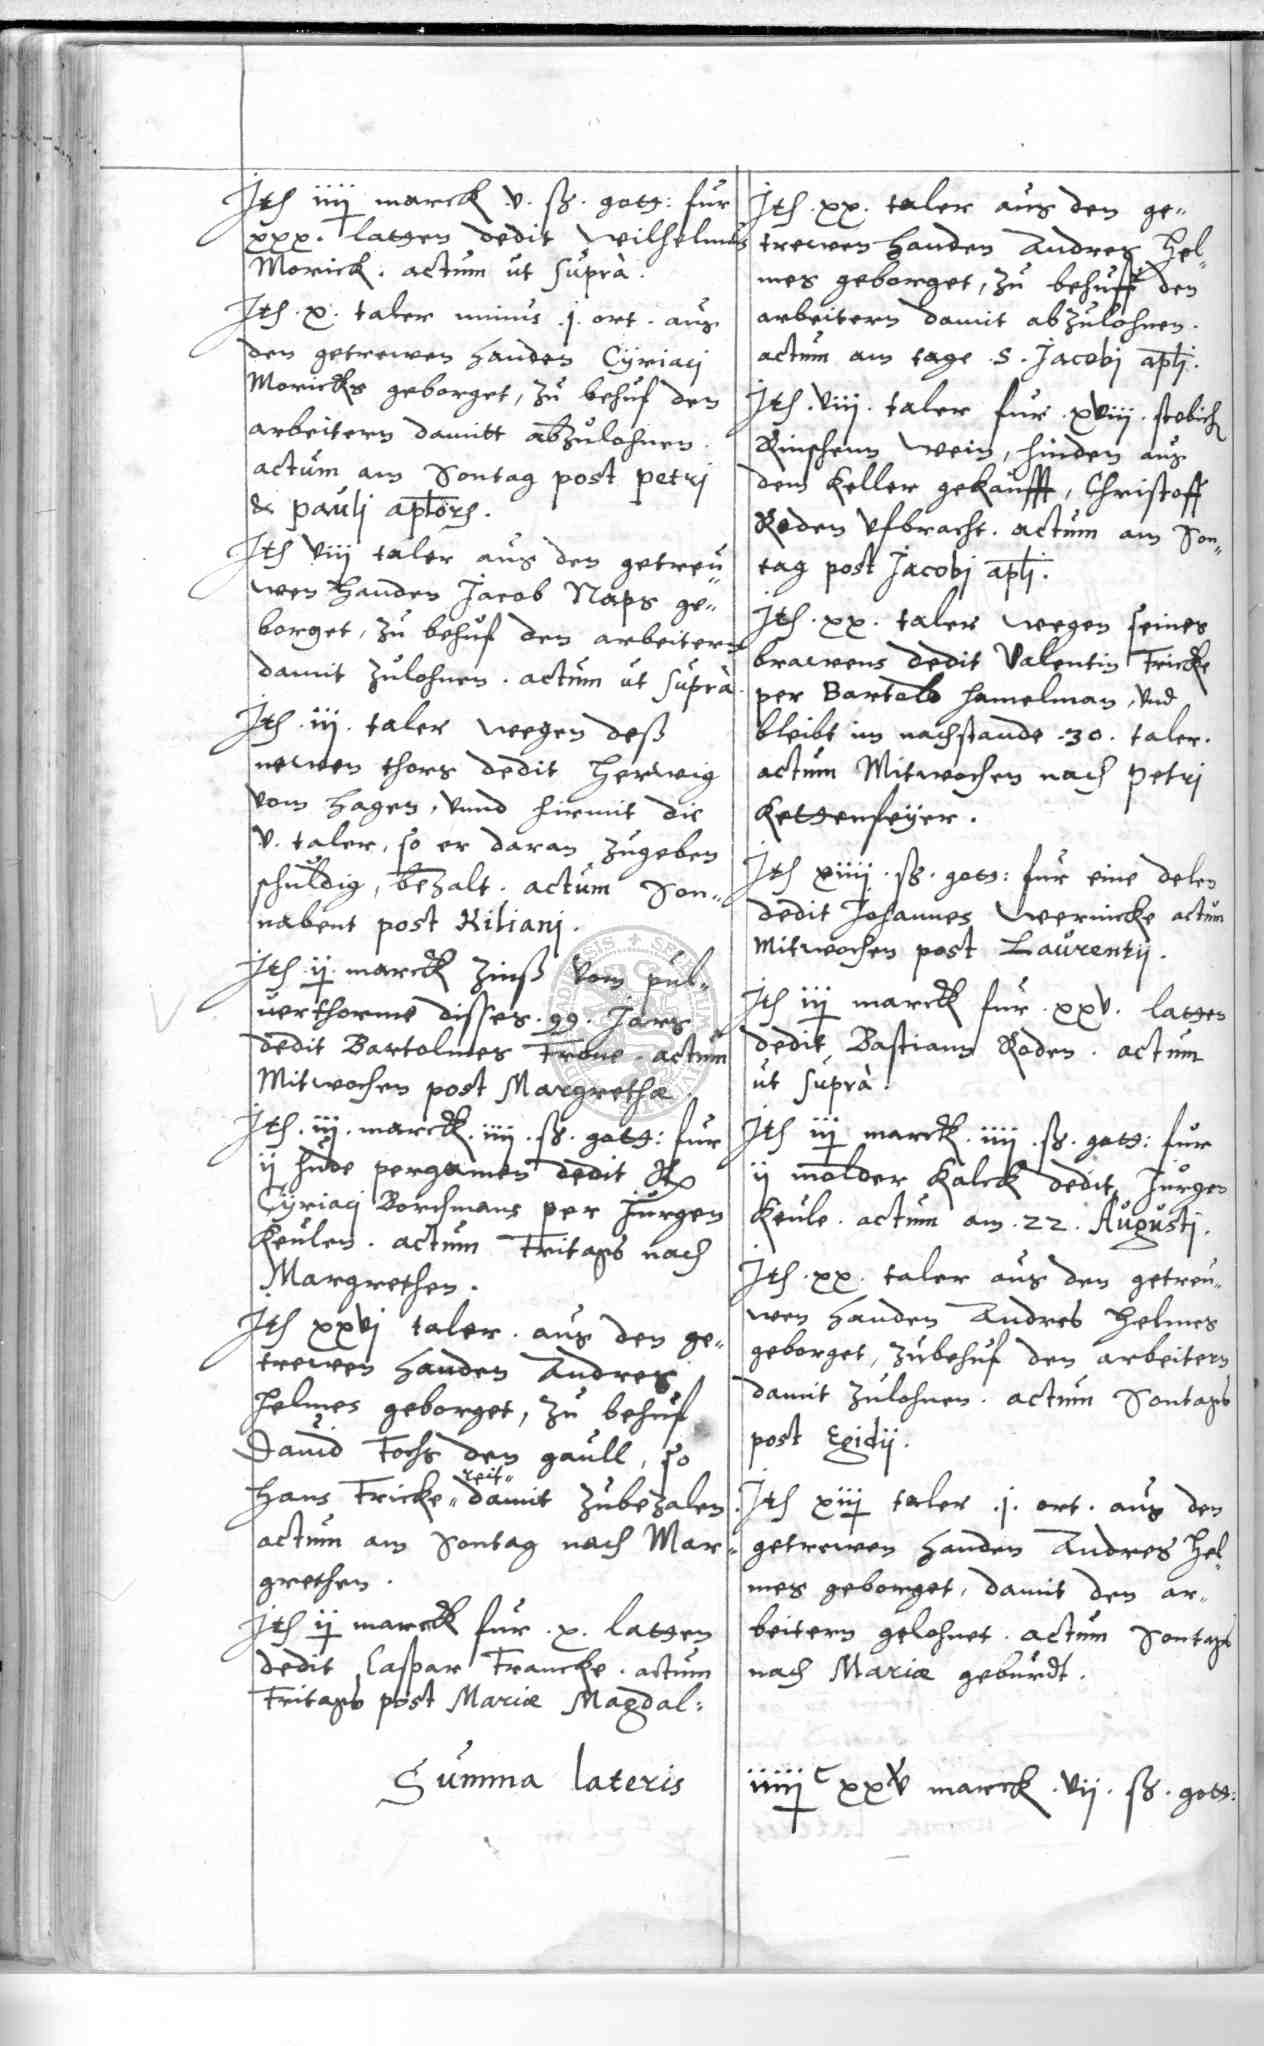 Jth iiij marck .v. ß. gotts: fur
xxx. lattzen dedit Wilhelmus
Morick. actum ut suprà.
Jth .x. taler minus .j. ort. aus
den getrewen handen Cÿriaci
Moricks geborget, zu behuf den
arbeitern damitt abzulohnen.
actum am Sontag post petri
& pauli aplörz.
Jth viij taler aus den getreu„
wen handen Jacob Naps ge„
borget, zu behuf den arbeitern
damit zulohnen. actum ut suprà.
Jth .iij. taler wegen deß
newen thors dedit Herwig
vom Hagen, vnnd hirmit die
v. taler, so er daran zugeben
schuldig, bezalt. actum Son„
nabent post Kiliani.
Jth ij marck zinß vom pul„
uerthorme disses .99. Jars
dedit Bartolmes Frone. actum
Mitwochen post Margrethæ.
Jth .iij. marck .iiij. ß. gotts: fur
ij hude pergamen dedit
Cÿriaci Borchmans per Jurgen
Keulen. actum Fritags nach
Margrethen.
Jth xxvj taler. aus den ge„
trewen handen Andres
Helmes geborget, zu behuf
Dauid Fochs den gaull, so
Hans Fricke„ reit„ damit zubezalen.
actum am Sontag nach Mar„
grethen.
Jth ij marck fur .x. lattzen
dedit Caspar Francke. actum
Fritags post Mariæ Magdal:
Jth .xx. taler aus den ge„
trewen handen Andres Hel„
mes geborget, zu behuff den
arbeitern damit abzulohnen.
actum am tage .S. Jacobi apli.
Jth .viij. taler fur .xviij. stobich
Rinschenn wein, hinden aus
dem Keller gekaufft, Christoff
Roden vfbracht. actum am Son„
tag post Jacobi apli.
Jth .xx. taler wegen seines
brawens dedit Valentin Fricke
per Bartold Hamelman, vnd
bleibt im nachstande .30. taler.
actum Mitwochen nach petri
Kettzenfeÿer.
Jth xiiij. ß. gotts: fur eine delen
dedit Johannes Wernicke actum
Mitwochen post Laurentij.
Jth iij marck fur .xxv. lattzen
dedit Bastiann Roden. actum
ut suprà.
Jth iij marck .iiij .ß. gotts: fur
ij molder Kalck dedit Jurgen
Keule. actum am .22. Augusti.
Jth .xx. taler aus den getreu„
wen handen Andres Helmes
geborget, zubehuf den arbeitern
damit zulohnen. actum Sontags
post Egidij.
Jth xiij taler .j. ort. aus den
getrewen handen Andres Hel„
mes geborget, damit den ar„
beitern gelohnet. actum Sontags
nach Mariæ geburdt.
Summa lateris iiiij C xxv marck .vij. ß. gotts: